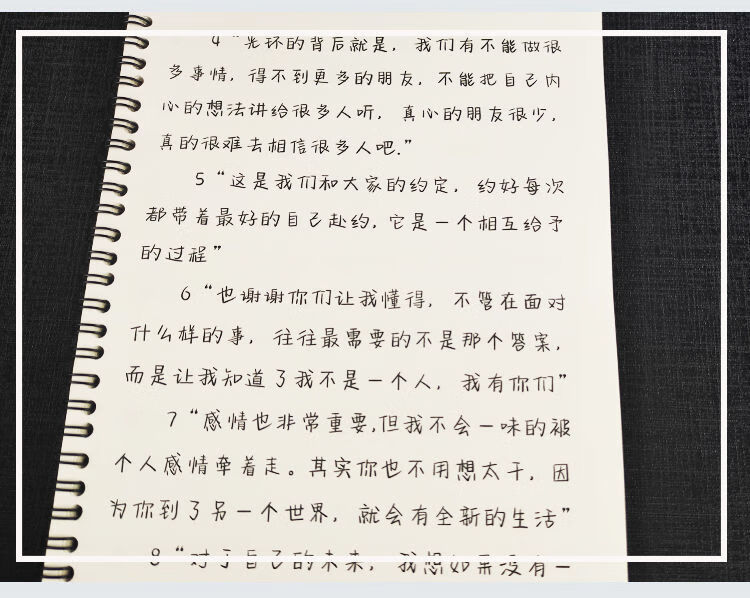 4“光环的背后就是，我们有不能做很
多事情，得不到更多的朋友，不能把自己内
心的想法讲给很多人听，真心的朋友很少，
真的很难去相信很多人吧.”
5“这是我们和大家的约定，约好每次
都带着最好的自己赴约，它是一个相互给予
的过程”
6“也谢谢你们让我懂得，不管在面对
什么样的事，往往最需要的不是那个答案，
而是让我知道了我不是一个人，我有你们”
7“感情也非常重要，但我不会一味的被
个人感情牵着走。其实你也不用想太干，因
为你到了另一个世界，就会有全新的生活”
8“对于自己的未来，我想如果没有一